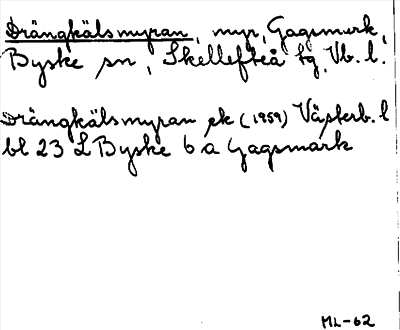 Drängkälsmyran, myr, Gagsmark,
Byske sn, Skellefteå tg, Vb. l.
Drängkälsmyran ek (1959) Västerb. l
bl 23 L Byske 6 a Gagsmark
ML-62